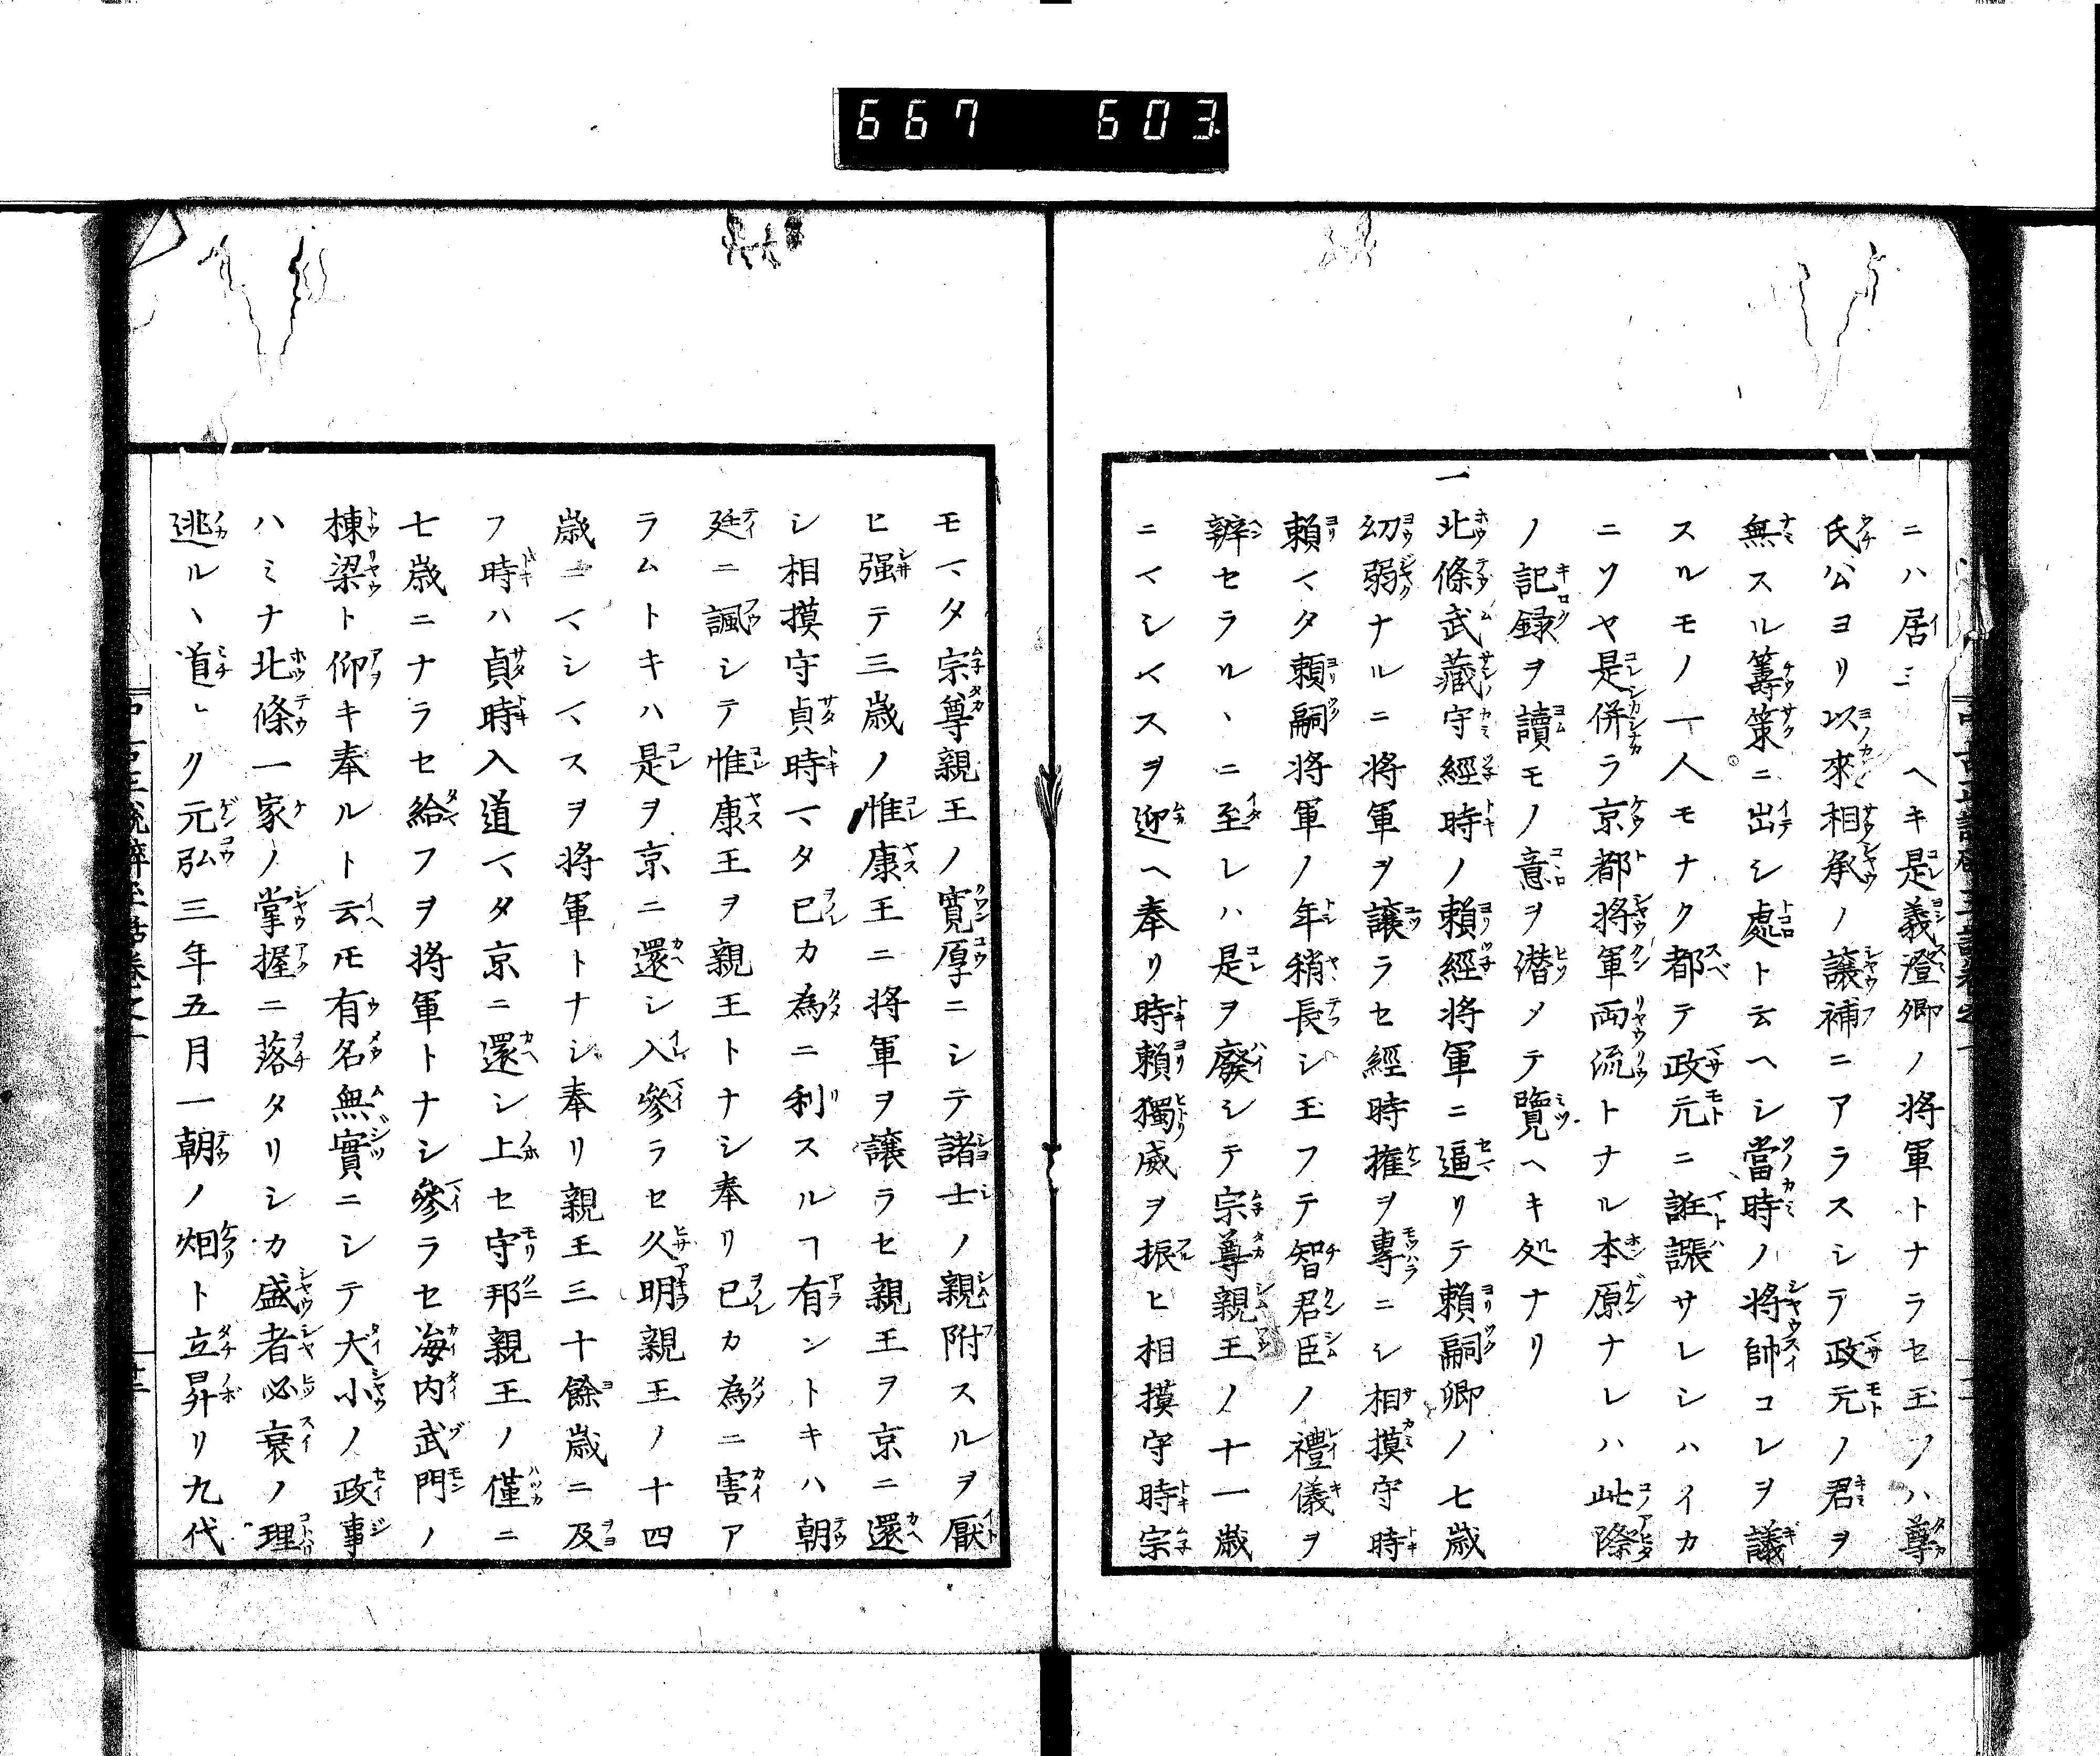 667 603
ニハ居ミヘキ是義澄卿ノ将軍トナラセ玉フハ尊
氏公ヨリ以來相承ノ讓補ニアラスシテ政元ノ君ヲ
無スル籌策ニ出シ處ト云ヘシ當時ノ将帥コレヲ議
スルモノ一人モナク都テ政元ニ誑サレシハイカ
ニソヤ是併ラ京都将軍両流トナル本原ナレハ此際
ノ記録ヲ讀モノ意ヲ潜メテ覽ヘキ処ナリ
一北條武藏守經時ノ賴經将軍ニ逼リテ賴嗣卿ノ七歳
幼弱ナルニ将軍ヲ讓ラセ經時擅ヲ專ニシ相摸守時
賴マタ賴嗣将軍ノ年稍長シ玉フテ智君臣ノ禮儀ヲ
辨セラルヽニ至レハ是ヲ廢シテ宗尊親王ノ十一歳
ニマシマスヲ迎ヘ奉リ時賴獨威ヲ振ヒ相摸守時宗
モマタ宗尊親王ノ寛厚ニシテ諸士ノ親附スルヲ厭
ヒ强テ三歳ノ惟康王ニ将軍ヲ讓ラセ親王ヲ京ニ還
シ相摸守貞時マタ已カ為ニ利スルヿ有ントキハ朝
廷ニ諷シテ惟康王ヲ親王トナシ奉リ已カ為ニ害ア
ラムトキハ是ヲ京ニ還シ入參ラセ久明親王ノ十四
歳ニマシマスヲ将軍トナシ奉リ親王三十餘歳ニ及
フ時ハ貞時入道マタ京ニ還シ上セ守邦親王ノ僅ニ
七歳ニナラセ給フヲ将軍トナシ參ラセ海内武門ノ
棟梁ト仰キ奉ルト云𪜈有名無實ニシテ大小ノ政事
ハミナ北條一家ノ掌握ニ落タリシカ盛者必衰ノ理
逃ルヽ道ナク元弘三年五月一朝ノ烟ト立昇リ九代